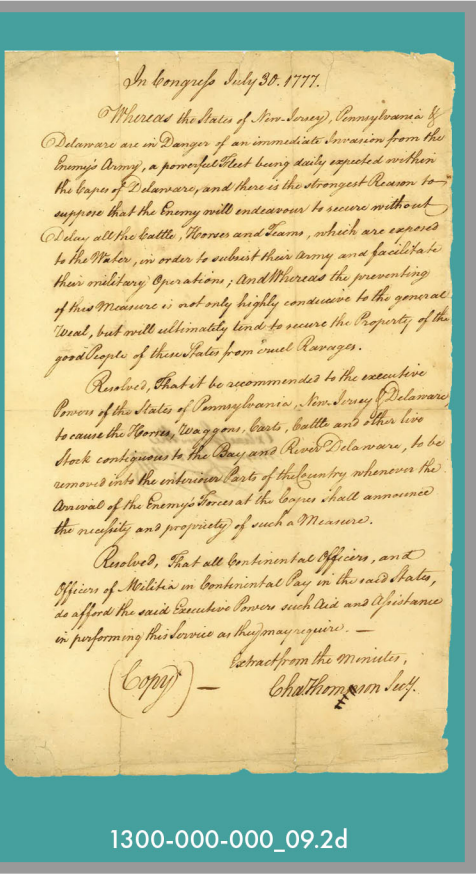 In Congress July 30. 1777.
Whereas the States of New-Jersey, Pennsylvania &
Delaware are in Danger of an immediate Invasion from the
Enemy's Army, a powerful Fleet being daily expected within
the Capes of Delaware, and there is the strongest Reason to
suppose that the Enemy will endeavour to secure without
Delay all the Cattle, Horses and Teams, which are exposed
to the Water, in order to subsist their Army and facilitate
their military Operations; And Whereas the preventing
of this Measure is not only highly conducive to the general
Weal, but will ultimately tend to secure the Property of the
good People of these States from cruel Ravages.
Resolved, That it be recommended to the executive
Powers of the States of Pennsylvania, New-Jersey & Delaware,
to cause the Horses, Waggons, Carts, Cattle and other live
Stock contiguous to the Bay and River Delaware, to be
removed into the interiour Parts of the Country whenever the
Arrival of the Enemy's Forces at the Capes shall announce
the necessity and propriety of such a Measure.
Resolved, That all Continental Officers, and
Officers of Militia in Continental Pay in the said States,
do afford the said Executive Powers such Aid and Assistance
in performing this Service as they may require. —
Extract from the Minutes,
(Copy) — Cha Thompson Secy.
1300-000-000_09.2d